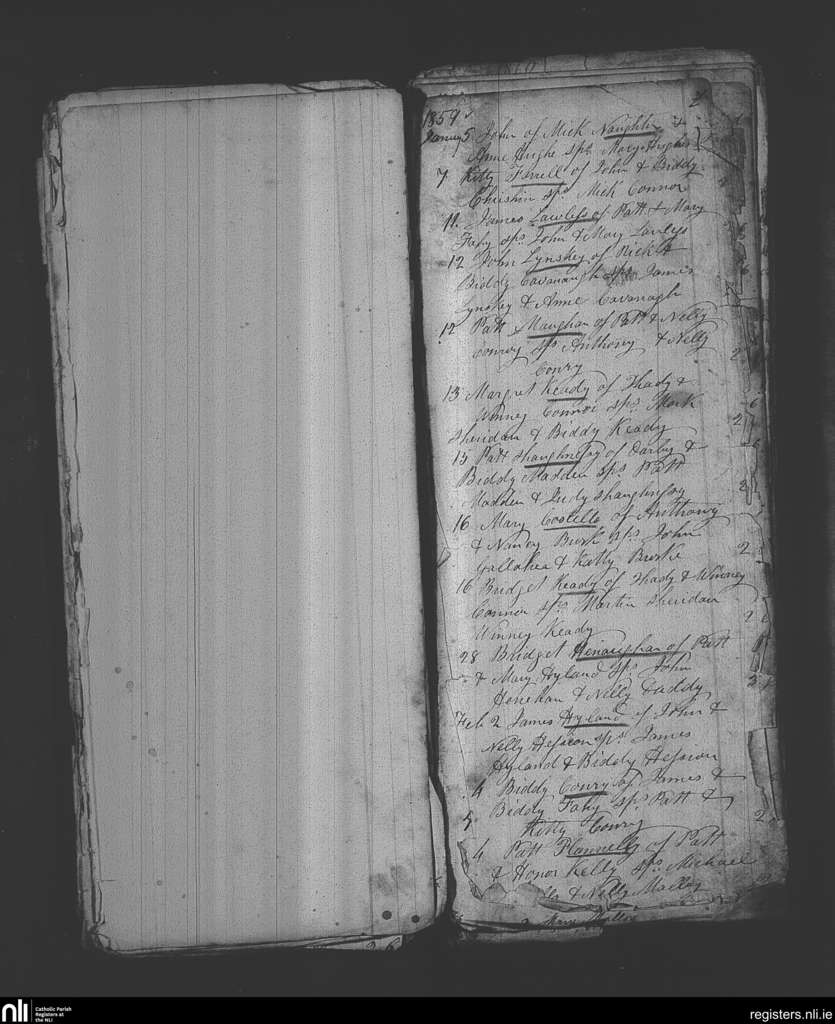 1859
Janry 5 John of Mick Naughton &
Anne Hughe sps Mary Hughs
7 Kitty Ferrell of John & Biddy
sps Mick Connor
11. James Lawless of Patt & Mary
Fahy sps John & Mary Lawless
12 John Lynskey of Mick &
Biddy Cavanaugh sps James
Lynskey & Anne Cavanagh
12 Patt Maughan of Patt & Nelly
Conroy sps Anthony & Nelly
Conry
13 Margret Keady of Thady &
Winney Connor sps Mark
Sheridan & Biddy Keady
15 Patt Shaughnessy of Darby &
Biddy Madden sps Patt
Madden & Judy Shaughnessy
16 Mary Costello of Anthony
& Nancy Burk sps John
Gallahea & Katty Burke
16 Bridget Keady of Thady & Winney
Connor sps Martin Sheridan
Winney Keady
28 Bridget Henaughan of Patt
& Mary Hyland sps John
Henehan & Nelly Daddy
Feb 2 James Hyland of John &
Nelly Hession sps James
Hyland & Biddy Hession
4 Biddy Conry of James &
Biddy Fahy sps Patt &
5 Kitty Conry
4 Patt Flannelly of Patt
& Honor Kelly sps Michael
& Nelly Malley
nli
Catholic Parish
Registers at
the NLI
registers.nli.ie